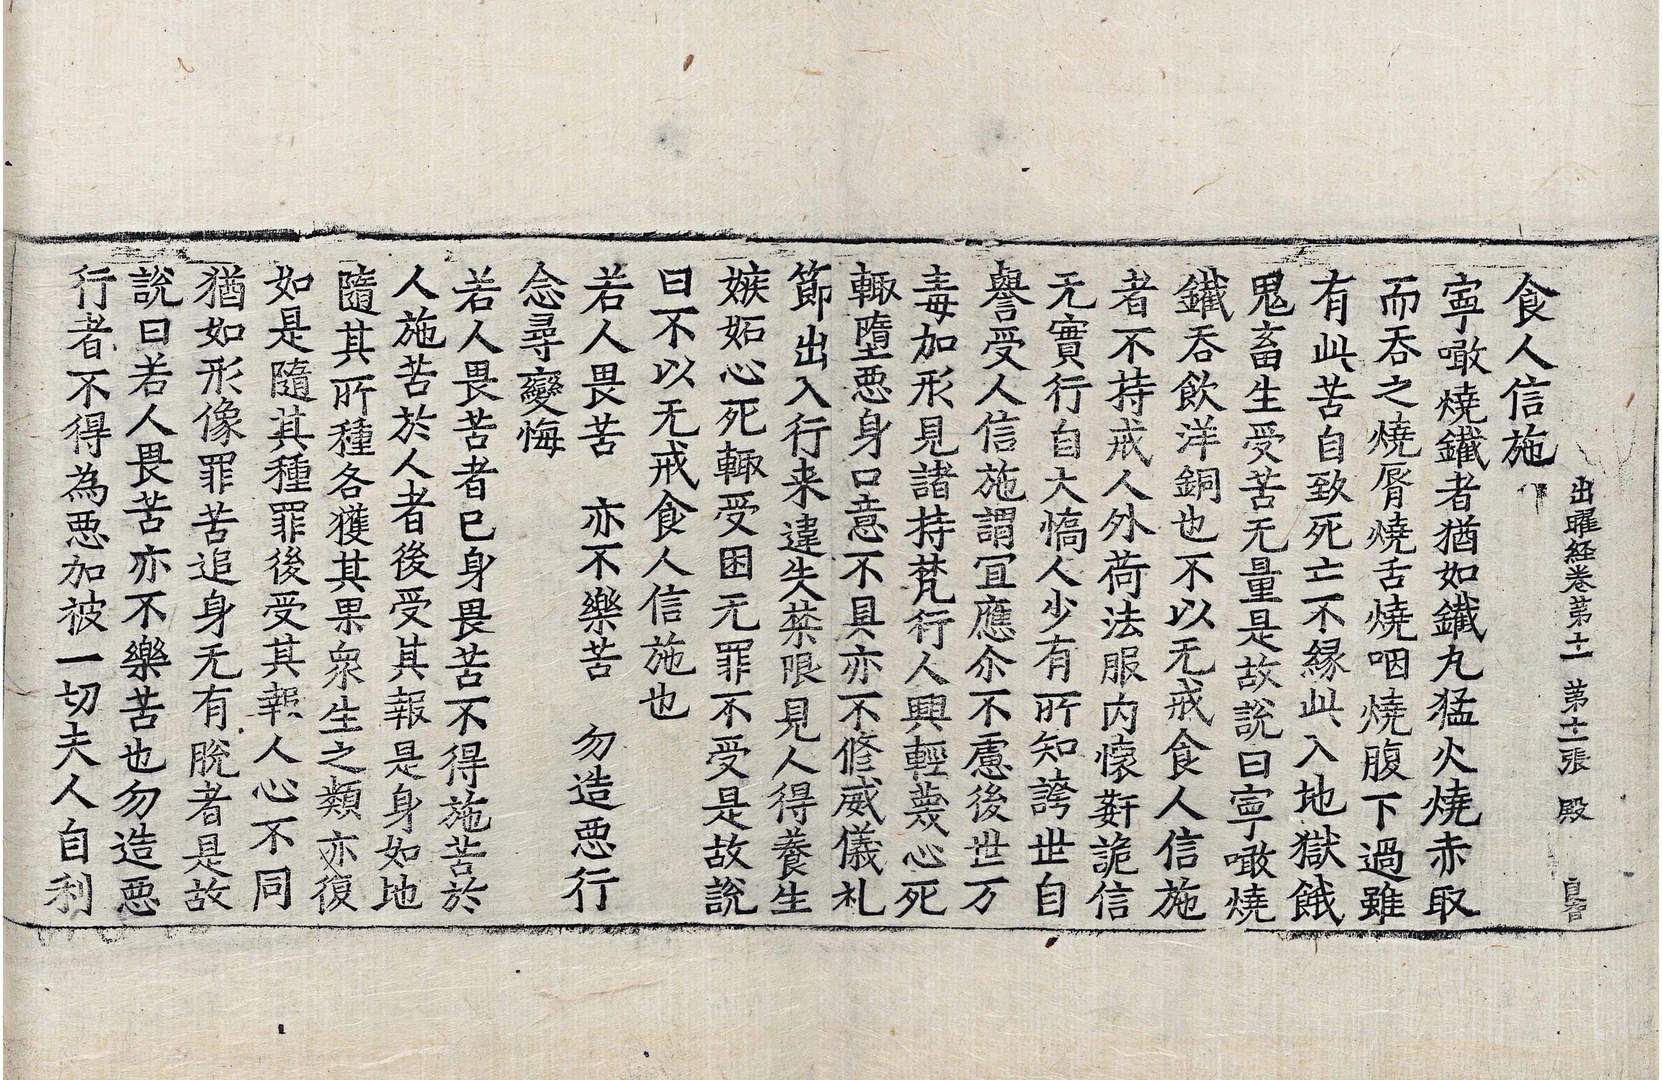 出曜経卷第十一　第十一張　殿　自智
食人信施
寧噉燒鐵者猶如鐵丸猛火燒赤取
而吞之燒脣燒舌燒咽燒腹下過雖
有此苦自致死亡不縁此入地獄餓
鬼畜生受苦无量是故說曰寧噉燒
鐵吞飲洋銅也不以无戒食人信施
者不持戒人外荷法服内懷姧詭信
无實行自大憍人少有所知誇世自
譽受人信施謂宜應尒不慮後世万
毒加形見諸持梵行人興輕蔑心死
輙墮惡身口意不具亦不修威儀礼
節出入行来違失禁限見人得養生
嫉妬心死輙受困无罪不受是故說
曰不以无戒食人信施也
若人畏苦　亦不樂苦　勿造惡行
念尋變悔
若人畏苦者已身畏苦不得施苦於
人施苦於人者後受其報是身如地
隨其所種各獲其果衆生之類亦復
如是隨其種罪後受其報人心不同
猶如形像罪苦追身无有脫者是故
說曰若人畏苦亦不樂苦也勿造惡
行者不得為惡加被一切夫人自利